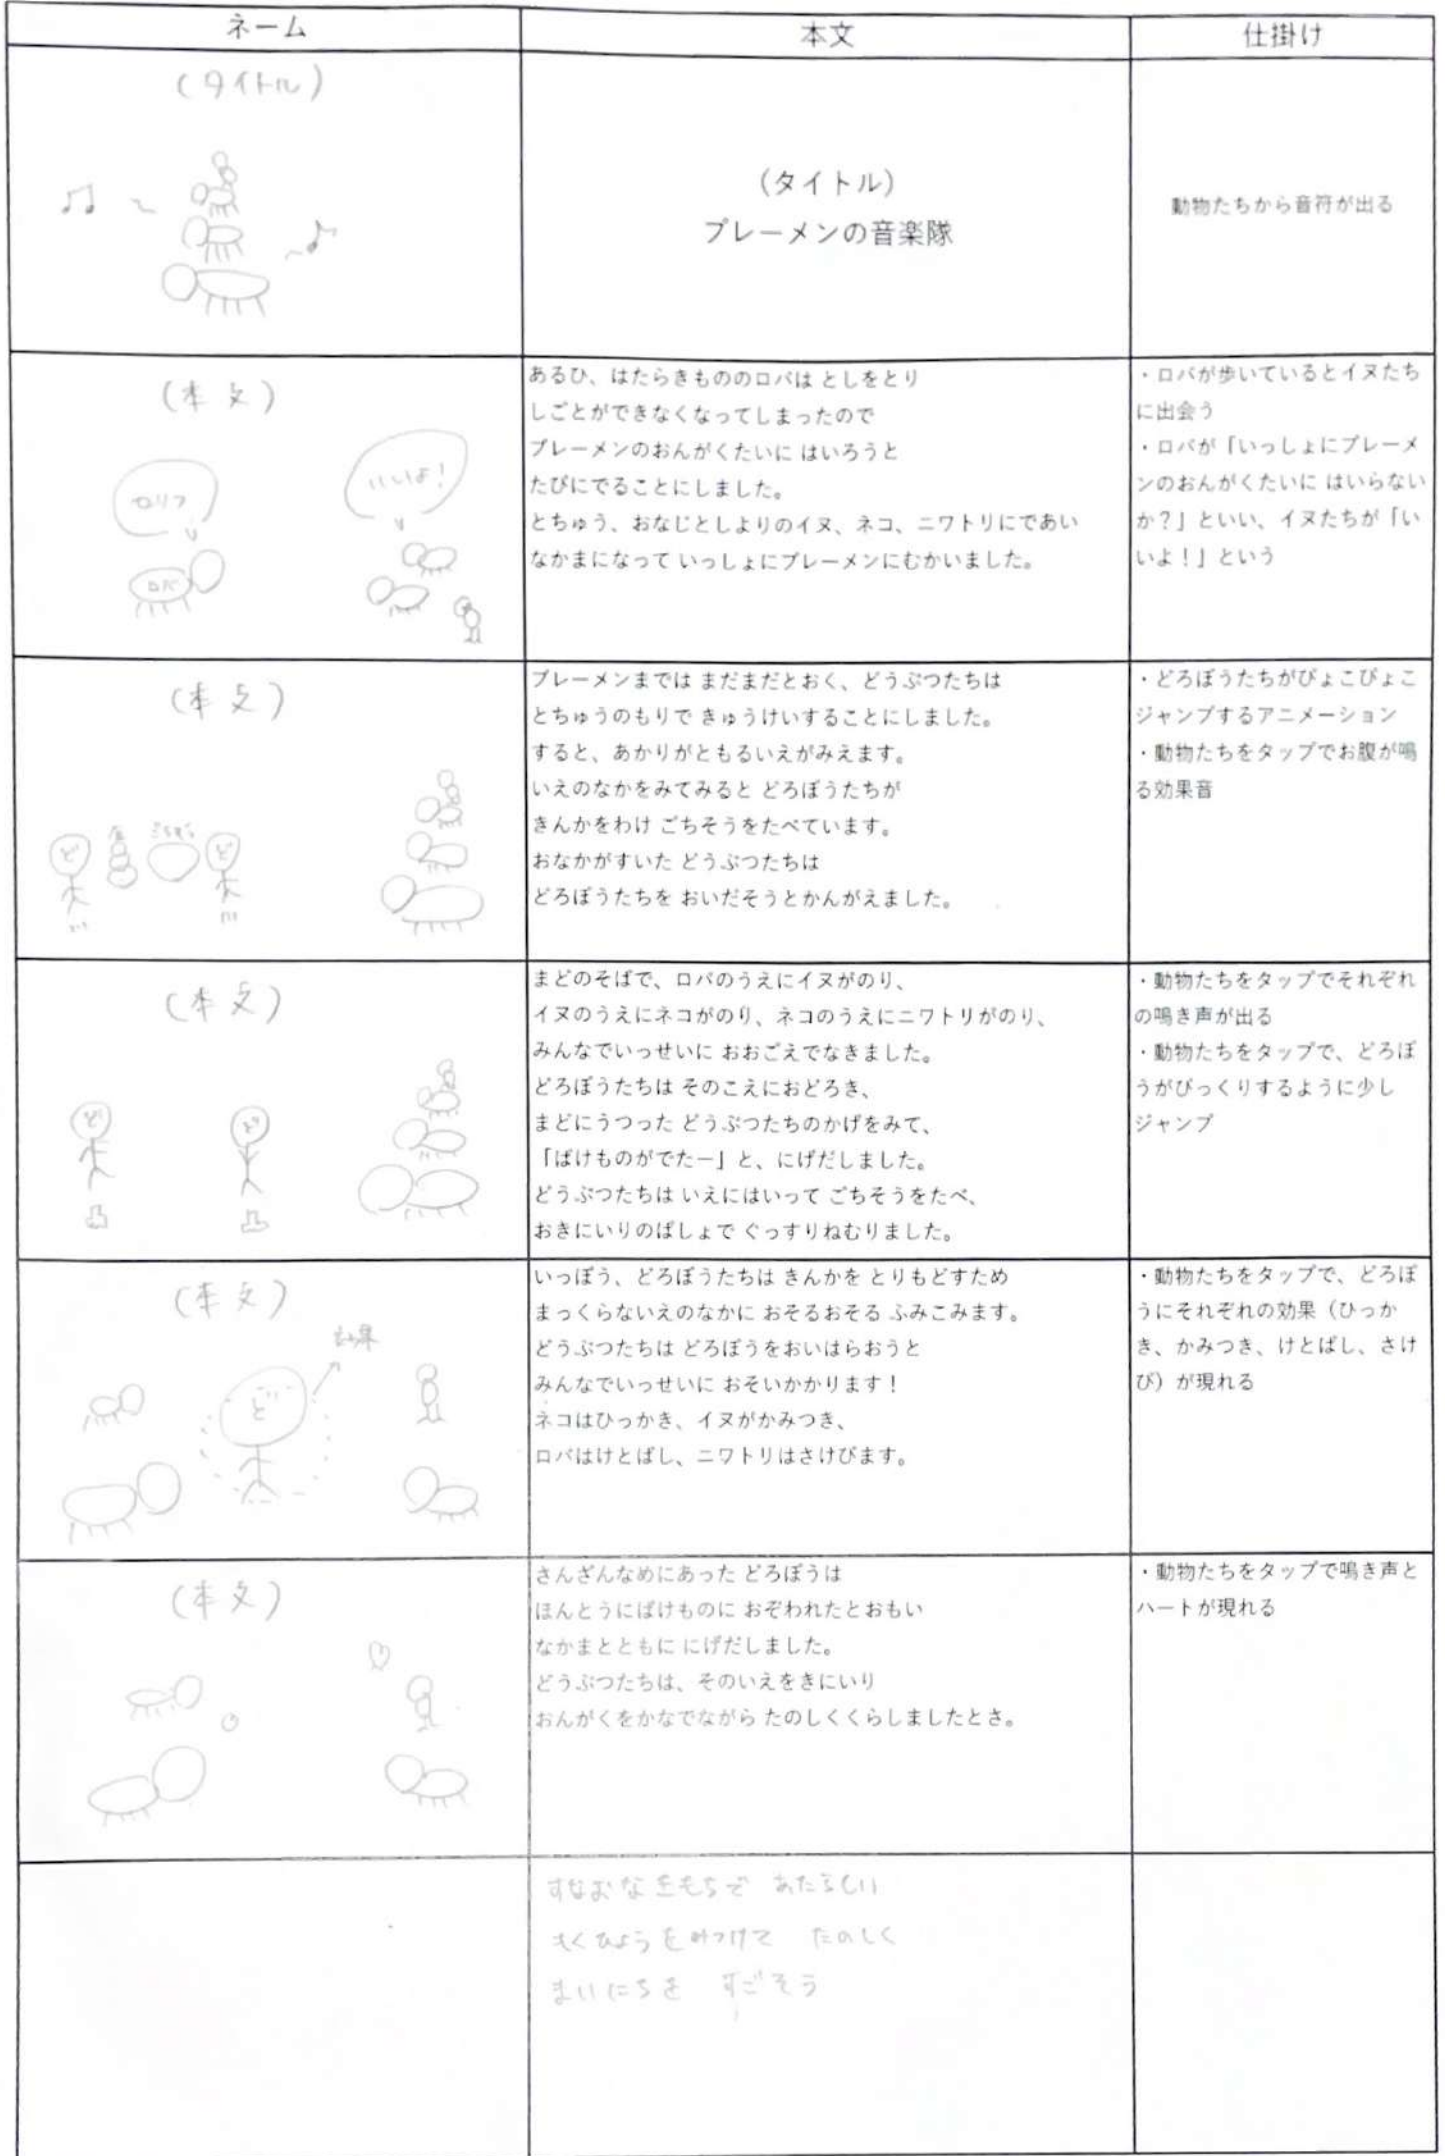 ネーム
本文
仕掛け
(タイトル)
(タイトル)
ブレーメンの音楽隊
動物たちから音符が出る
(本文)
セリフ
いいよ!
ロバ
あるひ、はたらきもののロバは としをとり
しごとができなくなってしまったので
ブレーメンのおんがくたいに はいろうと
たびにでることにしました。
とちゅう、おなじとしよりのイヌ、ネコ、ニワトリにであい
なかまになって いっしょにブレーメンにむかいました。
・ロバが歩いているとイヌたち
に出会う
・ロバが「いっしょにブレーメ
ンのおんがくたいに はいらない
か?」といい、イヌたちが「い
いよ!」という
(本文)
金
ごちそう
ど
ど
ブレーメンまでは まだまだとおく、どうぶつたちは
とちゅうのもりで きゅうけいすることにしました。
すると、あかりがともるいえがみえます。
いえのなかをみてみると どろぼうたちが
きんかをわけ ごちそうをたべています。
おなかがすいた どうぶつたちは
どろぼうたちを おいだそうとかんがえました。
・どろぼうたちがぴょこぴょこ
ジャンプするアニメーション
・動物たちをタップでお腹が鳴
る効果音
(本文)
ど
ど
まどのそばで、ロバのうえにイヌがのり、
イヌのうえにネコがのり、ネコのうえにニワトリがのり、
みんなでいっせいに おおごえでなきました。
どろぼうたちは そのこえにおどろき、
まどにうつった どうぶつたちのかげをみて、
「ばけものがでたー」と、にげだしました。
どうぶつたちは いえにはいって ごちそうをたべ、
おきにいりのばしょで ぐっすりねむりました。
・動物たちをタップでそれぞれ
の鳴き声が出る
・動物たちをタップで、どろぼ
うがびっくりするように少し
ジャンプ
(本文)
効果
ど
いっぽう、どろぼうたちは きんかを とりもどすため
まっくらないえのなかに おそるおそる ふみこみます。
どうぶつたちは どろぼうをおいはらおうと
みんなでいっせいに おそいかかります!
ネコはひっかき、イヌがかみつき、
ロバはけとばし、ニワトリはさけびます。
・動物たちをタップで、どろぼ
うにそれぞれの効果(ひっか
き、かみつき、けとばし、さけ
び)が現れる
(本文)
さんざんなめにあった どろぼうは
ほんとうにばけものに おそわれたとおもい
なかまとともに にげだしました。
どうぶつたちは、そのいえをきにいり
おんがくをかなでながら たのしくくらしましたとさ。
・動物たちをタップで鳴き声と
ハートが現れる
すなおなきもちで あたらしい
もくひょうをみつけて たのしく
まいにちを すごそう